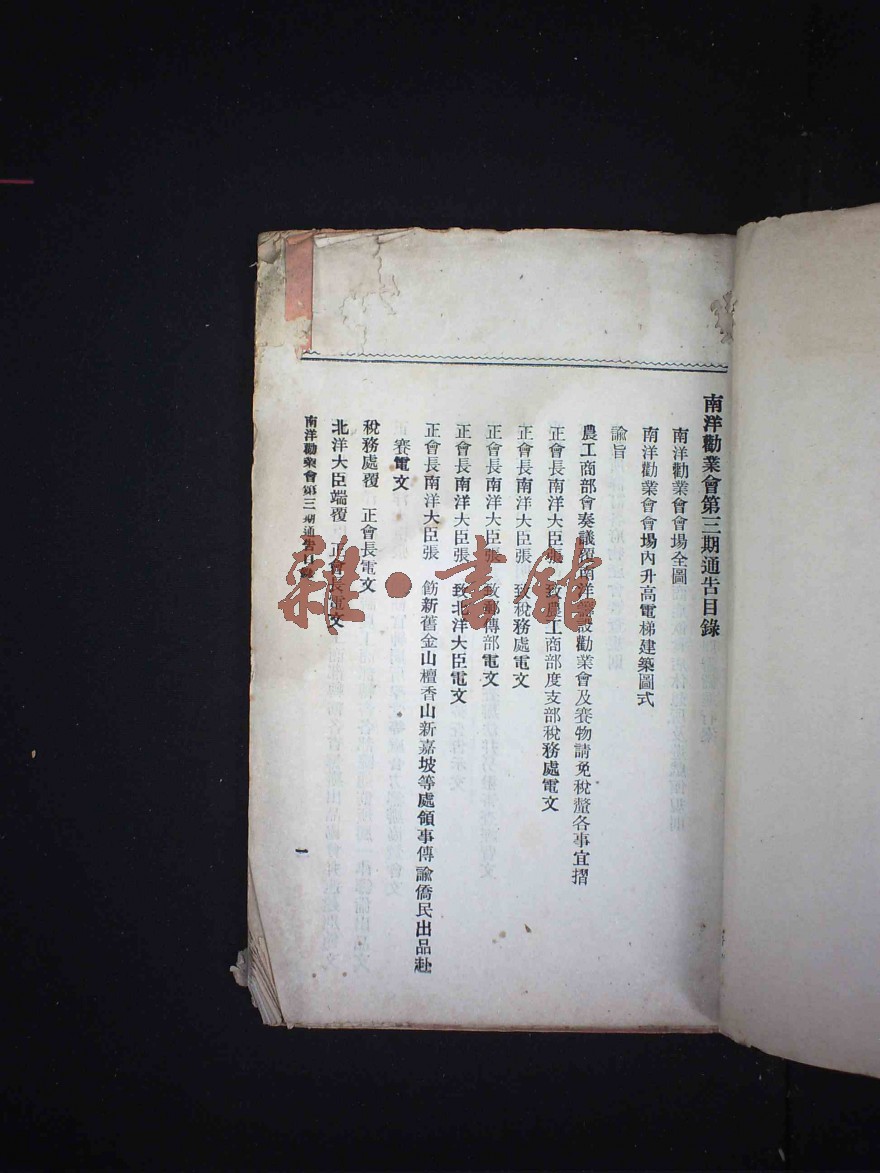 南洋勸業會第三期通告目錄
南洋勸業會會場全圖
南洋勸業會會場內升高電梯建築圖式
諭旨
農工商部會奏議覆南洋設勸業會及賽物請免稅釐各事宜摺
正會長南洋大臣張 致農工商部度支部稅務處電文
正會長南洋大臣張 致稅務處電文
正會長南洋大臣張 致郵傳部電文
正會長南洋大臣張 致北洋大臣電文
正會長南洋大臣張 飭新舊金山檀香山新嘉坡等處領事傳諭僑民出品赴
賽電文
稅務處覆 正會長電文
北洋大臣端覆 正會長電文
南洋勸業會第三期通告目錄
一
雜·書館